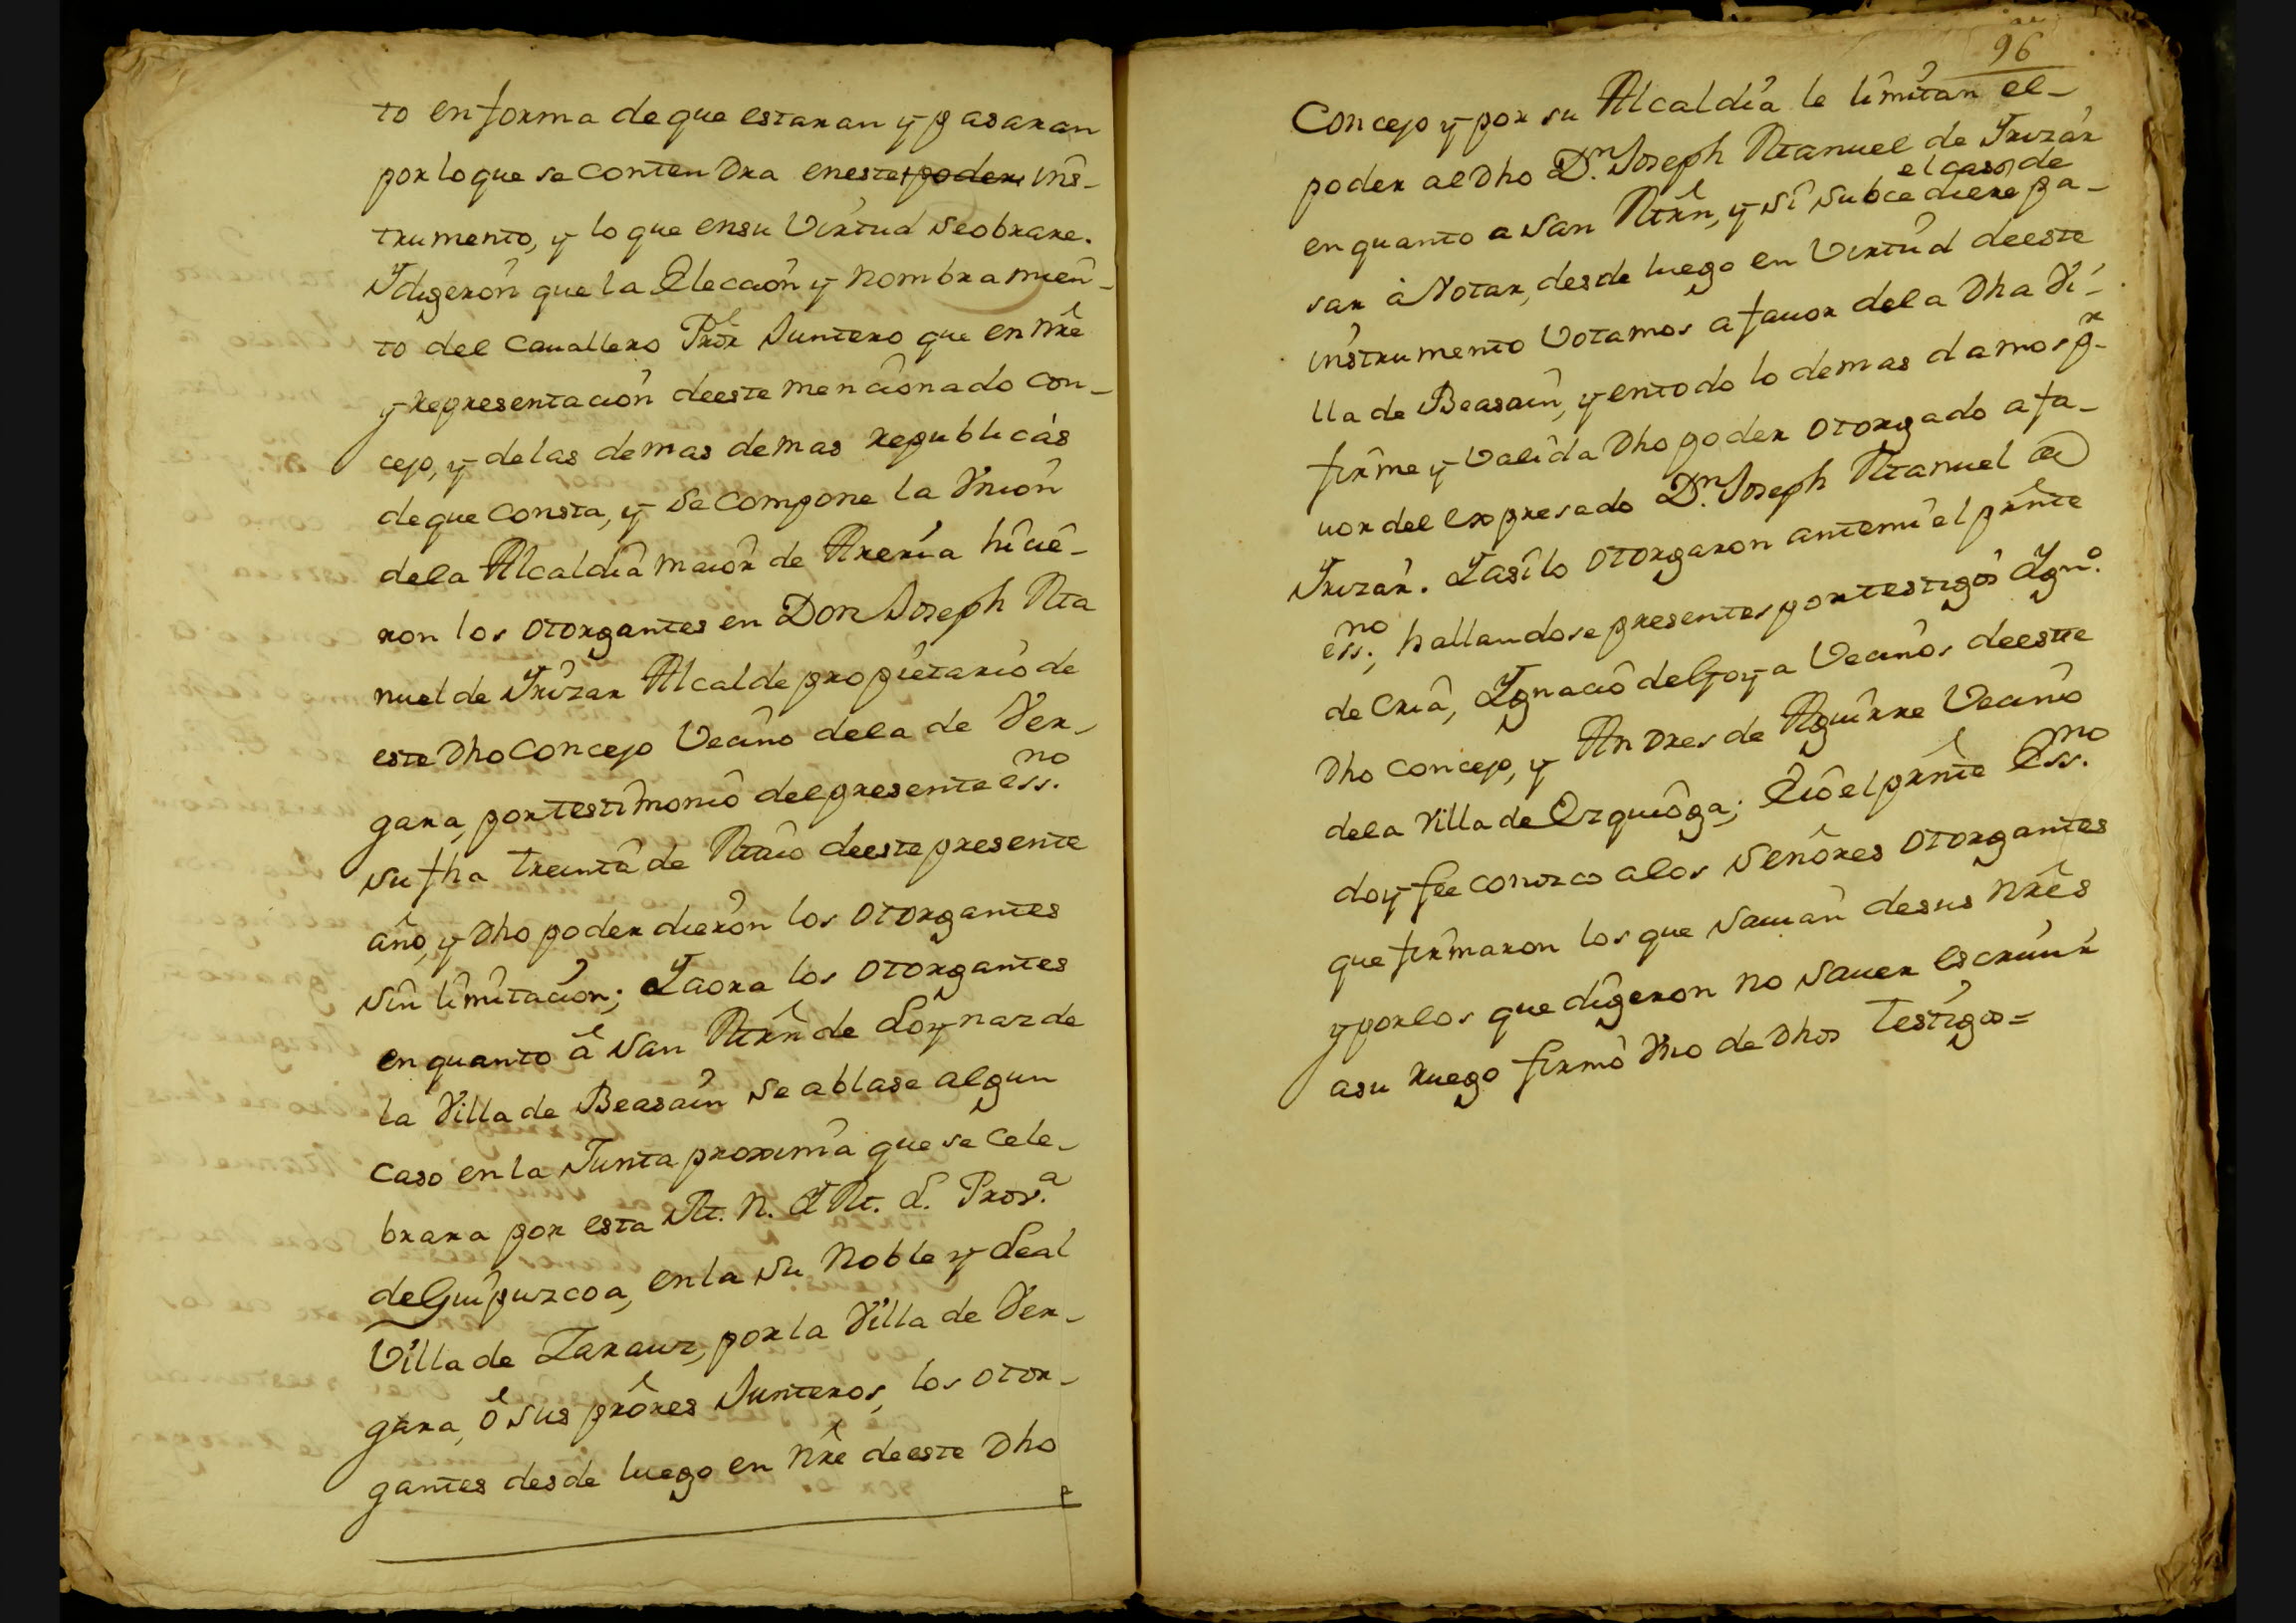 to en forma de que estaran y pasaran
por lo que se contendra en este poder ins-
trumento, y lo que en su Virtud se obrare.
Y digeron que la Eleccion y nombramien-
to del Cauallero Prôr Juntero que en nrê
y representacion de este mencionado con-
cejo, y de las demas demas republicas
de que consta, y se compone la Vnion
de la Alcaldia maior de Areria hicie-
ron los otorgantes en Don Joseph Ma
nuel de Irizar Alcalde propietario de
este Dho Concejo Vecino de la de Ver-
gara, por testimonio del presente ess.no
su fha treinta de Maio de este presente
año, y Dho poder dieron los otorgantes
sin limitacion; Y aora los otorgantes
en quanto â San Mrîn de Loynaz de
la Villa de Beasain se ablase algun
caso en la Junta proxima que se cele-
brara por esta M. N. Y M. L. Prov.a
de Guipuzcoa, en la su Noble y Leal
Villa de Zarauz, por la Villa de Ver-
gara, ô sus prôres Junteros, los otor-
gantes desde luego en nrê de este Dho
96
Concejo y por su Alcaldia le limitan el-
poder al Dho D.n Joseph Manuel de Irizar
el caso de
en quanto a San Mrîn, y si subcediere pa-
sar â Votar, desde luego en Virtud de este
instrumento Votamos a fauor de la Dha Vi-
lla de Beasain, y en todo lo demas damos p.r
firme y Valida Dho poder otorgado a fa-
uor del expresado D.n Joseph Manuel de
Irizar. Y asi lo otorgaron ante mi el prnte
ess.no, hallandose presentes por testigos Ygn.o
de Cria, Ygnacio de Goya Vecinos de este
Dho Concejo, y Andres de Aguirre Vecino
de la Villa de Ezquioga; E io el prnte Ess.no
doy fee conozco a los Señores otorgantes
que firmaron los que sauian de sus nrês
y por los que digeron no sauer escriuir
a su ruego firmo Vno de Dhos testigos=